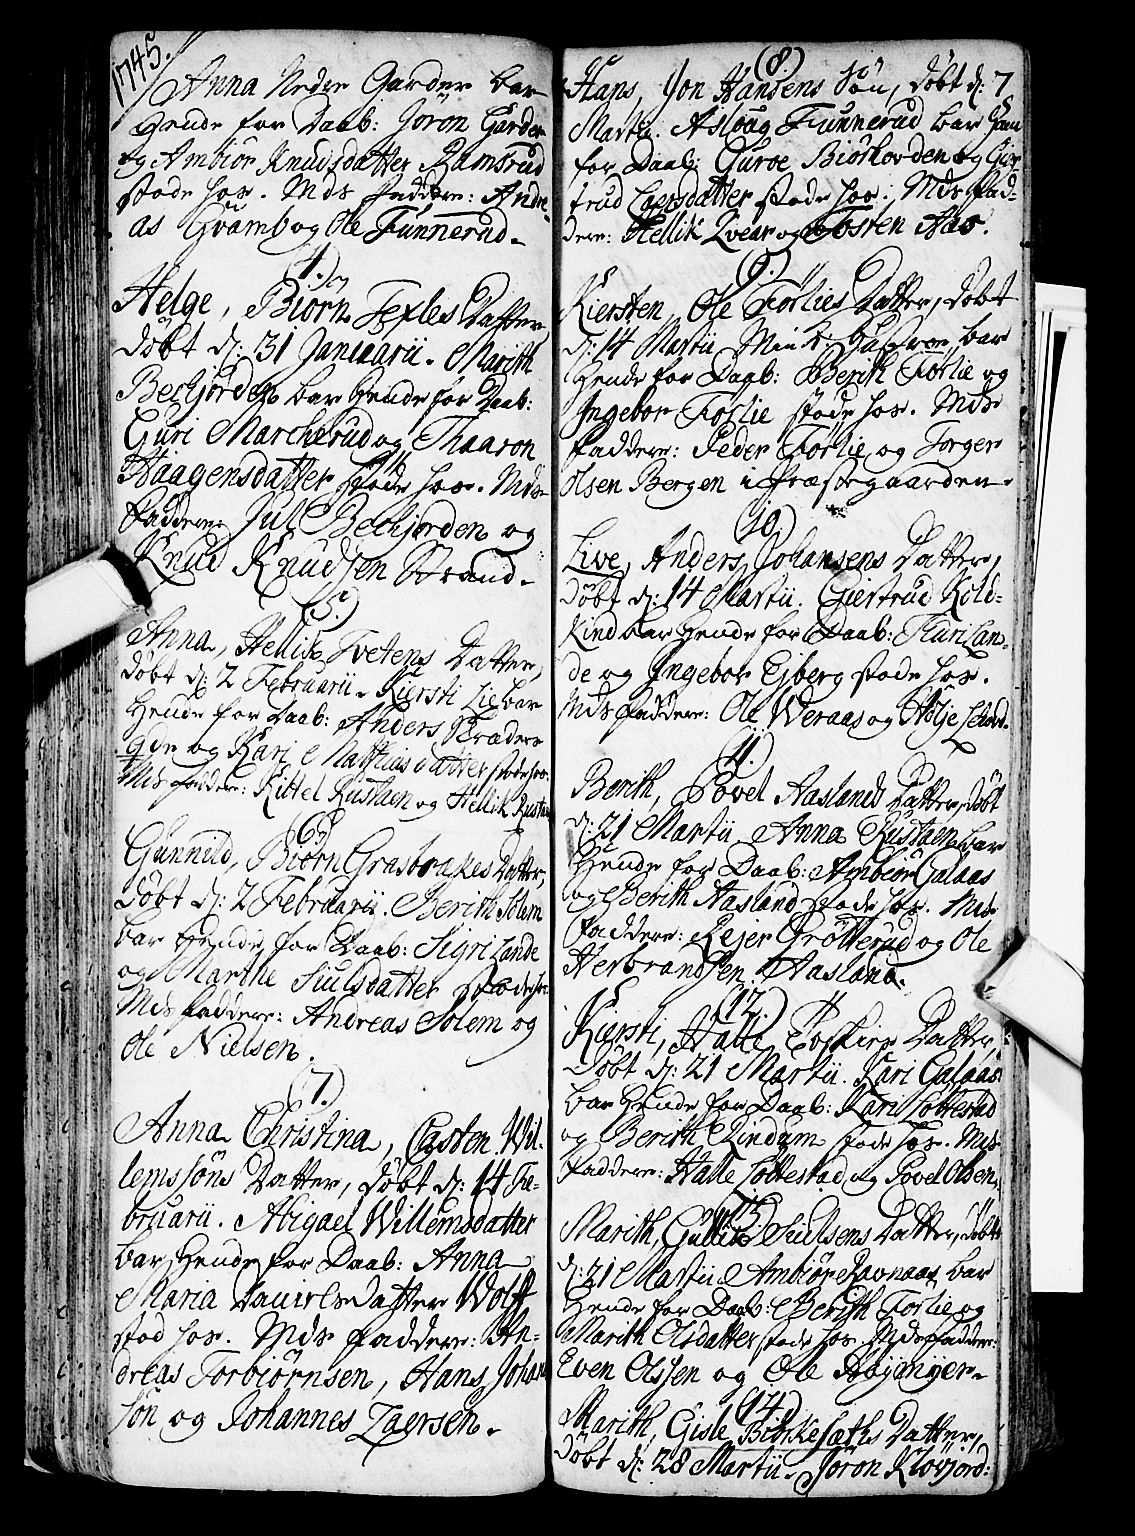 1745.
Anna Nedre Garder bar
hende for Daab: Jòròn Garder
og Ambiòr Knudsdatter Ramsrud
stode hos. Mds faddere: Andre-
as Gvamb og Ole Funnerud.
4.
Helge, Biòrn Texles Datter
dòbt d: 31 Januarii. Marith
Bechjorden bar hende for Daab:
Guri Marcherud og Thaaron
Haagensdatter stode hos. Mds
faddere Jul Bechjorden og
Knud Knudsen Strand.
5.
Anna, Hellik Tvetens Datter,
dòbt d: 2 Februarii. Kiersti Lie bar
hende for Daab: Anders
og Kari Mathiasdatter stode hos.
Mds faddere: Kittel Rustaen og Hellik Rustaen
6.
Gunnild, Biòrn Grasbrakes Datter,
dòbt d: 2 Februarii. Berith Solem
bar hende for Daab: Sigri Lande
og Marthe Siulsdatter stode hos.
Mds faddere: Andreas Solem og
Ole Nielsen.
7.
Anna Christina, Casten Wil-
lemssòns Datter, dòbt d: 14 Fe-
bruarii. Abigael Willemsdatter
bar hende for Daab: Anna
Maria Lauiresdatter Wolff
stod hos. Mds faddere: An-
dreas Torbiòrnsen, Hans Johan
sòn og Johannes Laersen.
8
Hans, Jon Hansens Sòn, dòbt d: 7
Martii. Asloug Funnerud bar ham
for Daab: Guroe Biòrkorden og Gier
trud Laersdatter stode hos. Mds fad-
dere: Hellik Qvear og Tosten Aas.
9.
Kiersten, Ole Fòrlies Datter, dòbt
d: 14 Martii. Min K: Hustroe bar
hende for Daab: Berith Fòrlie og
Ingebor Fòrlie stode hos. Mds
faddere: Peder Fòrlie og Torger
Olsen Bergen i Præstegaarden.
10
Live, Anders Johansens Datter,
dòbt d: 14 Martii. Giertrud Kold-
kind bar hende for Daab: Turi Lan-
de og Ingebor Ejberg stode hos.
Mds faddere: Ole Weraas og Hòlje
11.
Berith, Povel Aaslands Datter, dòbt
d: 21 Martii. Anna Rustaen bar
hende for Daab: Ambiòr Galaas
og Berith Aasland stode hos. Mds
faddere: Rejer Gròtterud og Ole
Herbrandsen Aasland.
12.
Kiersti, Halle Datter,
dòbt d: 21 Martii. Kari Galaas
bar hende for Daab: Kari Lòftestad
og Berith Rindum stode hos. Mds
faddere: Halle Lòftestad og Povel Olsen.
13.
Marith, Gullik Siulsens Datter, dòbt
d: 21 Martii. Ambiòr Ravnaas bar
hende for Daab: Berith Fòrlie og
Marith Olsdatter stode hos. Mds faddere:
Even Olssen og Ole Bòyinger.
14.
Marith, Gisle Biòrkesæths Datter,
dòbt d: 28 Martii. Jòron Klòvjord: